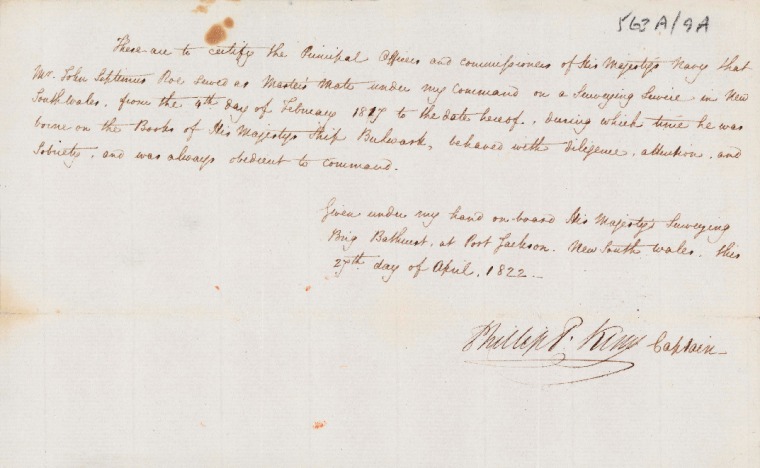 563A/9A
These are to certify the Principal Officers and commissioners of His Majesty's Navy that
Mr. John Septimus Roe served as Master's Mate under my Command on a Surveying Service in New
South Wales, from the 4th day of February 1817 to the date hereof, during which time he was
borne on the Books of His Majesty's Ship Bulwark, behaved with diligence, attention, and
Sobriety, and was always obedient to command.
Given under my hand on-board His Majesty's Surveying
Brig Bathurst, at Port Jackson. New South Wales, this
27th day of April, 1822.
Phillip P. King Captain